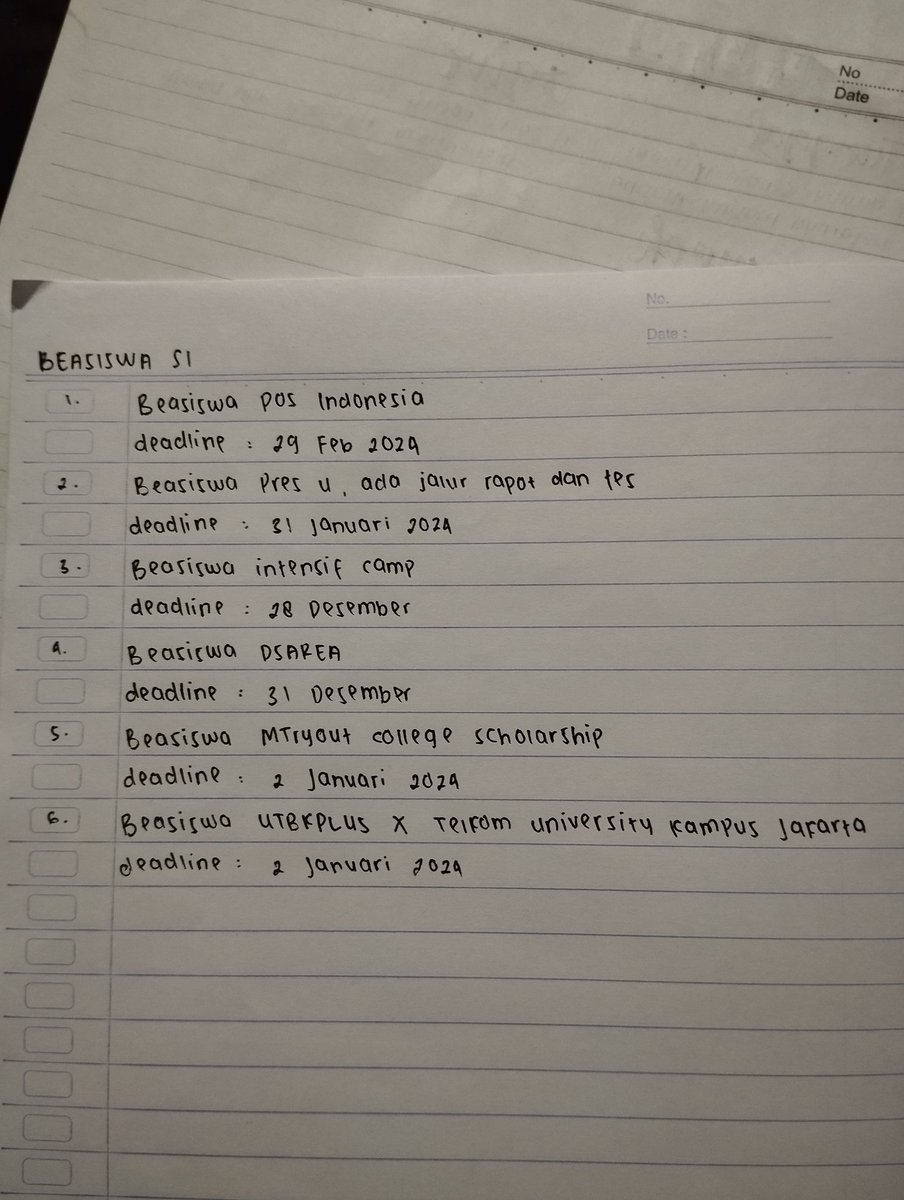 No
Date
No.
Date :
BEASISWA S1
1. Beasiswa pos Indonesia
deadline : 29 Feb 2024
2. Beasiswa Pres u, ada jalur rapot dan tes
deadline : 31 Januari 2024
3. Beasiswa intensif camp
deadline : 28 Desember
4. Beasiswa DSAREA
deadline : 31 Desember
5. Beasiswa MTryout college scholarship
deadline : 2 Januari 2024
6. Beasiswa UTBKPLUS X Telkom university kampus Jakarta
deadline : 2 Januari 2024